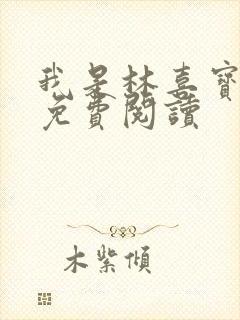 我是林喜寶
免費閱讀
木紫傾